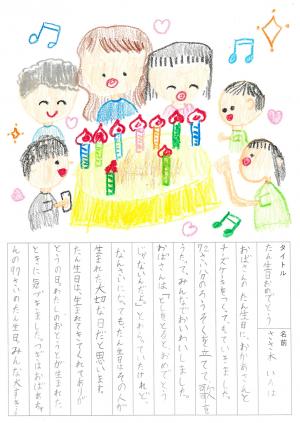 タイトル
たん生日おめでとう
名前
ささ木 いろは
おばさんの たん生日に おかあさんと
チーズケーキをつくってもっていきました。
72さい分のろうそくを立てて歌を
うたって、みんなでおいわいしました。
おばさんは、「としをとるとおめでとう
じゃないんだよ」とわらっていたけれど、
なんさいになってもたん生日はその人が
生まれた大切な日だと思います。
たん生日は、生まれてきてくれてありが
とうの日。わたしのおとうとが生まれた
ときに気づきました。つぎはおばあちゃ
んの97さいのたん生日。みんな大すき！